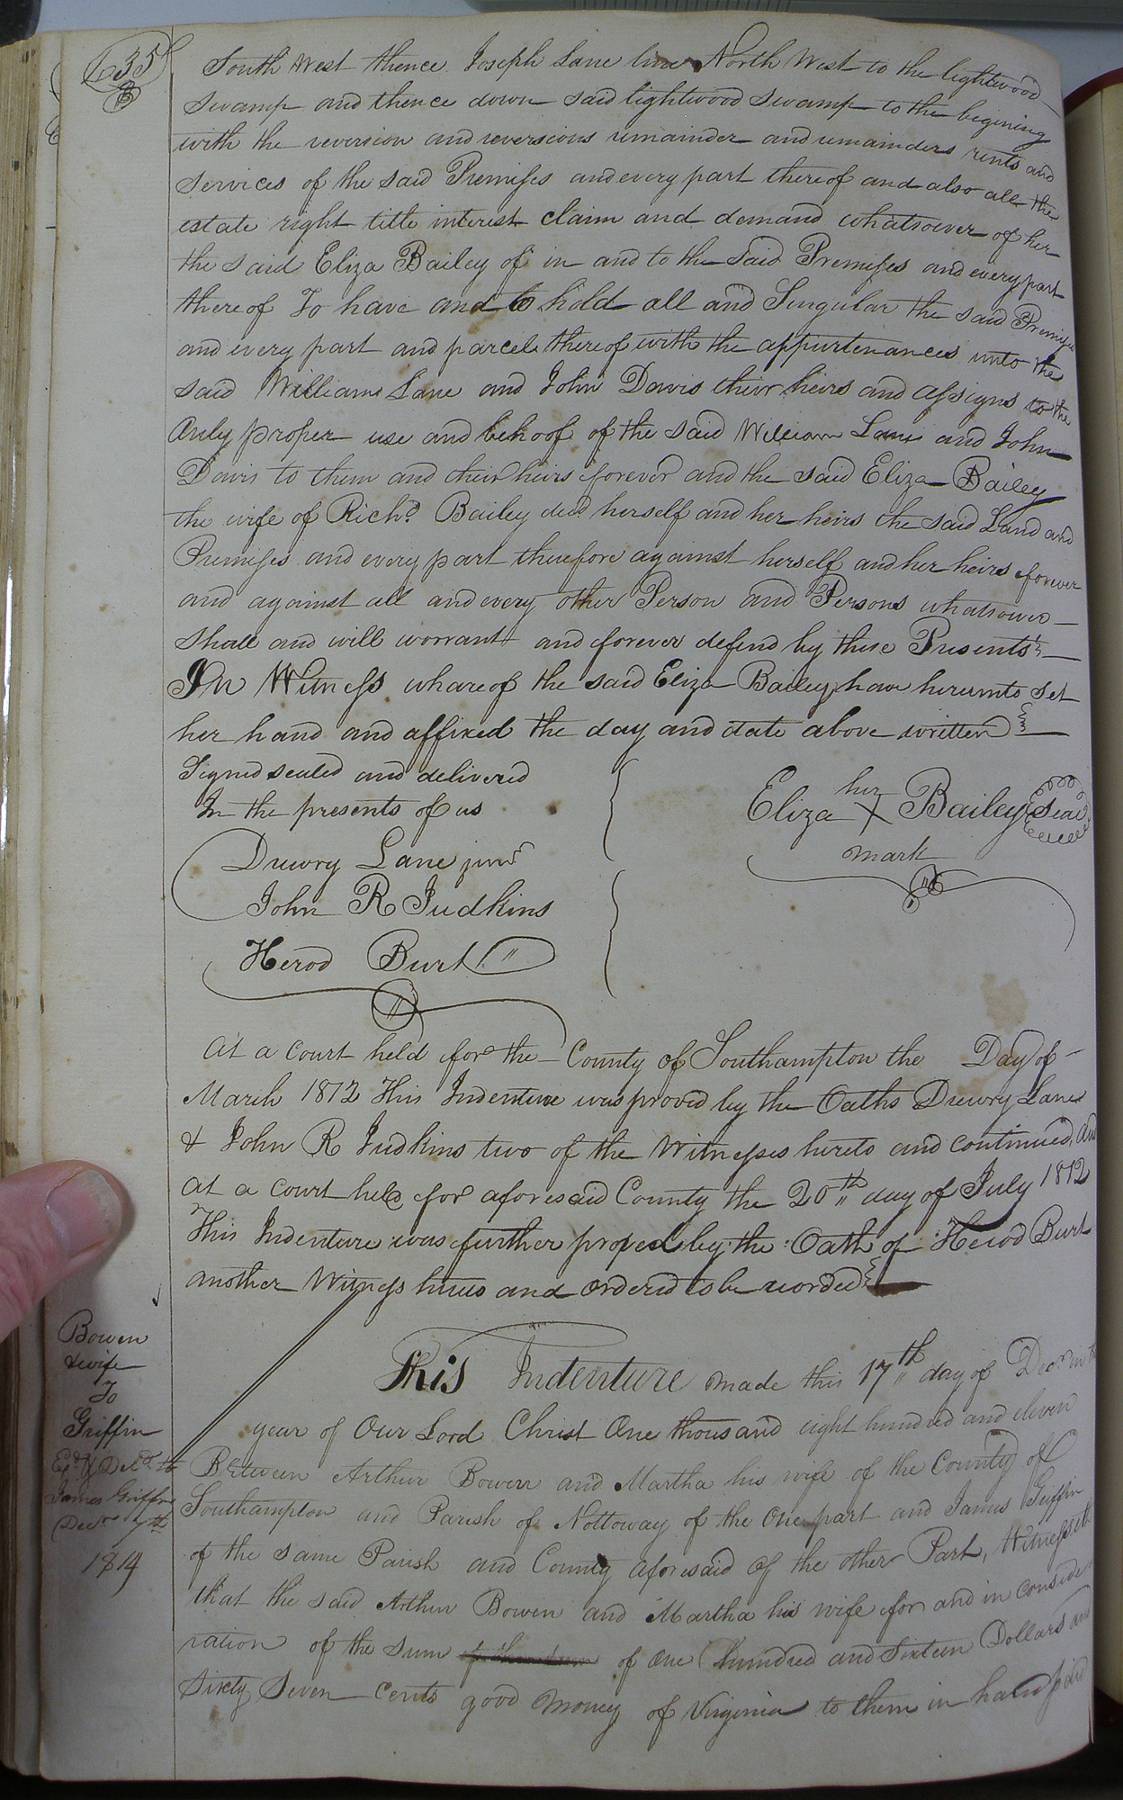 635
South West thence Joseph Lane line North West to the lightwood
Swamp and thence down said lightwood Swamp to the begining
with the reversion and reversions remainder and remainders rents and
Services of the said Premises and every part thereof and also all the
estate right title interest claim and demand whatsoever of her
the said Eliza Bailey of in and to the said Premises and every part
thereof To have and to hold all and Singular the said Premises
and every part and parcel thereof with the appurtenances unto the
said William Lane and John Davis their heirs and assigns to the
Only proper use and behoof of the said William Lane and John
Davis to them and their heirs forever and the said Eliza Bailey
the wife of Richd. Bailey decd herself and her heirs the said Land and
Premises and every part therefore against herself and her heirs forever
and against all and every other Person and Persons whatsoever
Shall and will worrant and forever defend by these Presents
In Witness whareof the said Eliza Bailey have hereunto Set
her hand and affixed the day and date above written
Signed sealed and delivered
In the presents of us
Eliza her X Bailey Seal
mark
Drewry Lane junr
John R Judkins
Herod Burt
At a Court held for the County of Southampton the Day of
March 1812 This Indenture was proved by the Oaths Drewry Lane
& John R Judkins two of the Witnesses hereto and continued And
at a Court held for aforesaid County the 20th day of July 1812
This Indenture was further proped by the Oath of Herod Burt
another Witness hereto and ordered to be recorded
Bowen
& wife
To
Griffin
James Griffin
Decr. 7th
1814
This Indenture made this 17th day of Decr in the
year of Our Lord Christ One thousand eight hundred and eleven
Between Arthur Bowen and Martha his wife of the County of
Southampton and Parish of Nottoway of the One part and James Griffin
of the same Parish and County aforesaid of the other Part, Witnesseth
that the said Arthur Bowen and Martha his wife for and in conside
ration of the sum of One hundred and Sixteen Dollars and
Sixty Seven cents good money of Virginia to them in hand paid